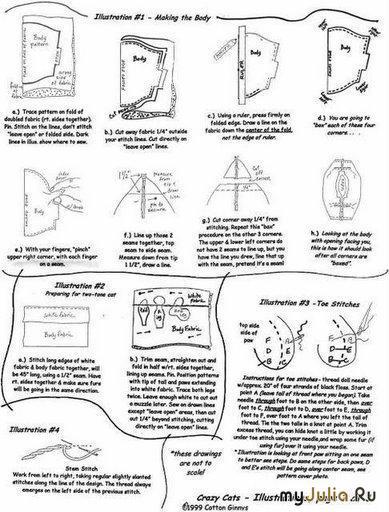 Illustration #1 - Making the Body
Body
pattern
Body
RULER
Body
Body
a.) Trace pattern on fold of
doubled fabric (rt. sides together).
Pin. Stitch on the lines, don't stitch
"leave open" or folded side. Dark
lines in illus. show where to sew.
b.) Cut away fabric 1/4" outside
your stitch lines. Cut directly on
"leave open" lines.
c.) Using a ruler, press firmly on
folded edge. Draw a line on the
fabric down the center of the fold,
not the edge of ruler.
d.) You are going to
"box" each of these four
corners. . . .
Body
1½"
measure
from
tip
pin to
secure
cut off
corner
e.) With your fingers, "pinch"
upper right corner, with each finger
on a seam.
f.) Line up those 2
seams together, top
seam to side seam.
Measure down from tip
1 1/2", draw a line.
g.) Cut corner away 1/4" from
stitching. Repeat this "box"
procedure on the other 3 corners.
The upper & lower left corners do
not have 2 seams to line up, but you
have the line you drew, line that up
with the seam, pretend it's a seam!
h.) Looking at the
body with opening facing you,
this is how it should look
after all corners are
"boxed".
Illustration #2
Preparing for two-tone cat
White fabric
Body Fabric
White
Fabric
Body Fabric
a.) Stitch long edges of white
fabric & body fabric together, will
be 45" long, using a 1/2" seam. Have
rt. sides together & make sure furs
will be going in the same direction.
b.) Trim seam, straighten out and
fold in half w/rt. sides together,
lining up seams. Pin. Position patterns
with tip of tail and paws extending
into white fabric. Trace both legs
twice. Leave enough white to cut out
a muzzle later. Sew on drawn lines
except "leave open" areas, then cut
out 1/4" beyond stitching, cutting
directly on "leave open" lines.
Illustration #3 - Toe Stitches
top side
side of
paw
F
D
B
A
C
E
Instructions for toe stitches - thread doll needle
w/approx. 20" of four strands of black floss. Start at
point A (leave tail of thread where you began). Take
needle through foot to B on the other side, then over
foot to C, through foot to D, over foot to E, through
foot to F, over foot to A where you left the tail of
thread. Tie the two tails in a knot at point A. Trim
excess thread, you can hide knot a little by working it
under toe stitch using your needle and wrap some fur (if
using fur) over it using your needle.
*Illustration is looking at front paw sitting on one seam
to better see steps. Do same steps for back paws, D
and E's stitch will be going along center seam, see
pattern cover photo.
Illustration #4
Stem Stitch
Work from left to right, taking regular slightly slanted
stitches along the line of the design. The thread always
emerges on the left side of the previous stitch.
*these drawings
are not to
scale!
Crazy Cats -
©1999 Cotton Ginnys
myJulia.Ru